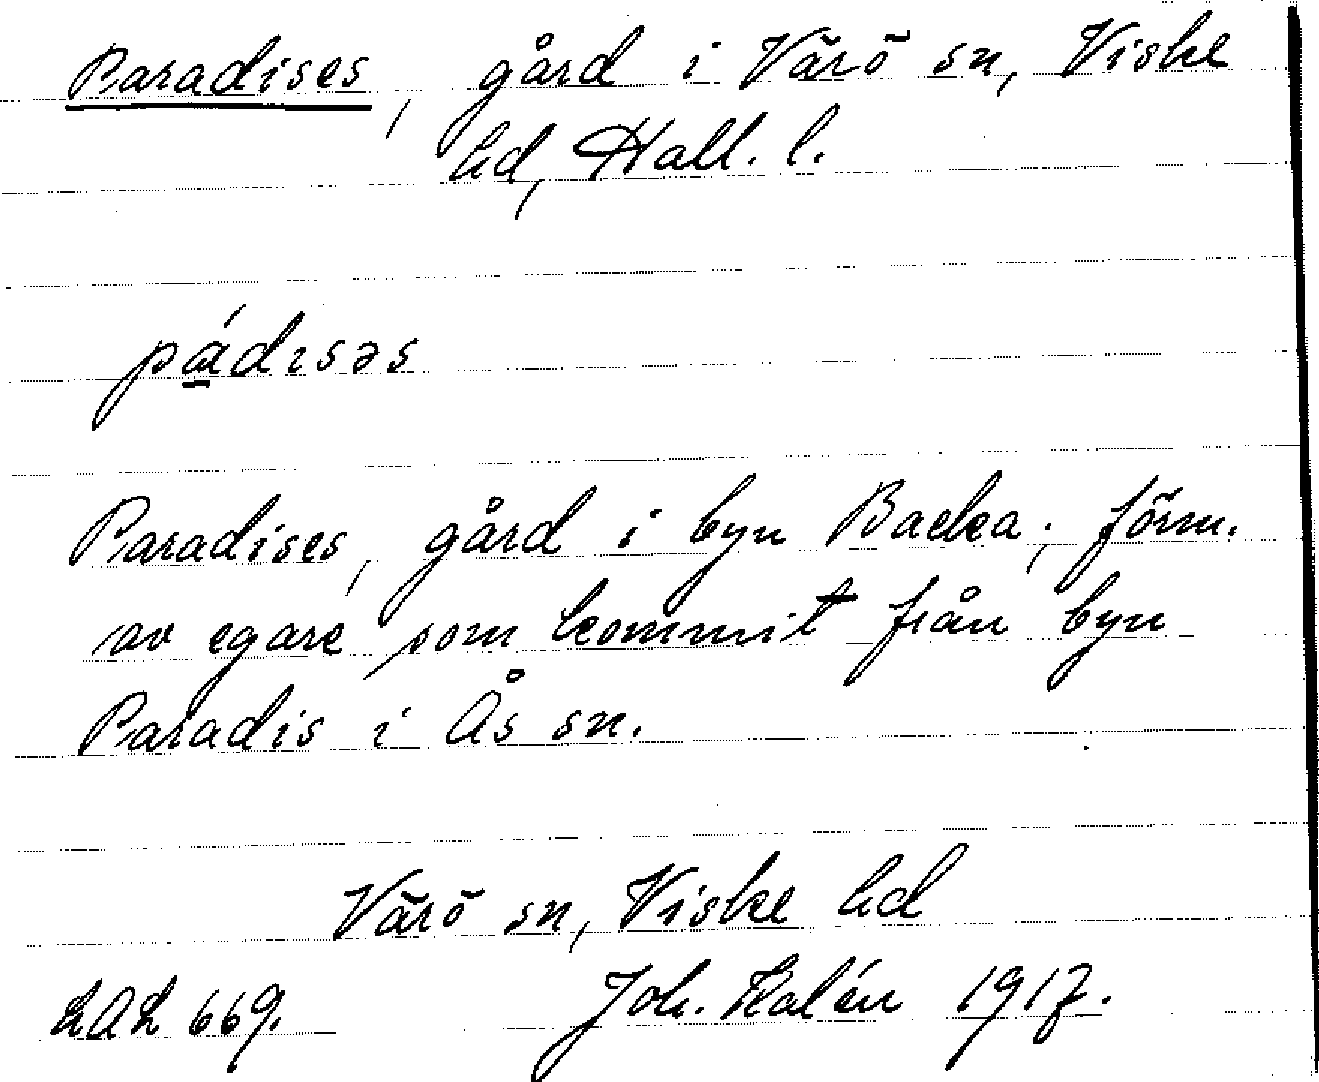 Paradises, gård i Värö sn, Viske
hd, Hall. l.
pádisəs
Paradises, gård i byn Backa; förm.
av egare som kommit från byn
Paradis i Ås sn.
Värö sn, Viske hd
LAL 669. Joh. Kalén 1917.